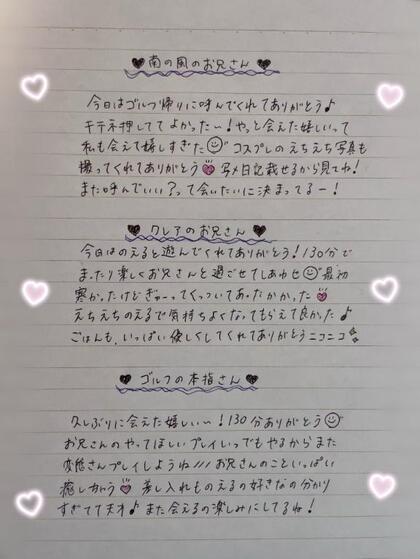 ♥ 南の風のお兄さん ♥
今日はゴルフ帰りに呼んでくれてありがとう♪
キテネ押しててよかった〜!やっと会えた嬉しいって
私も会えて嬉しすぎた☺コスプレのえちえち写真も
撮ってくれてありがとう💗写メ日記載せるから見てね!
また呼んでいい?って会いたいに決まってるー!
♥ クレアのお兄さん ♥
今日はのえると遊んでくれてありがとう!130分で
まったり楽しくお兄さんと過ごせてしあわせ☺最初
寒かったけどぎゅーってくっついてあったかかった💗
えちえちのえるで気持ちよくなってもらえて良かった♪
ごはんも、いっぱい優しくしてくれてありがとうニコニコ
♥ ゴルフの本指さん ♥
久しぶりに会えた嬉しい〜!130分ありがとう☺
お兄さんのやってほしいプレイいつでもやるからまた
変態さんプレイしようね///お兄さんのこといっぱい
癒し合おう💗差し入れものえるの好きなの分かり
すぎてて天才♪また会えるの楽しみにしてるね!